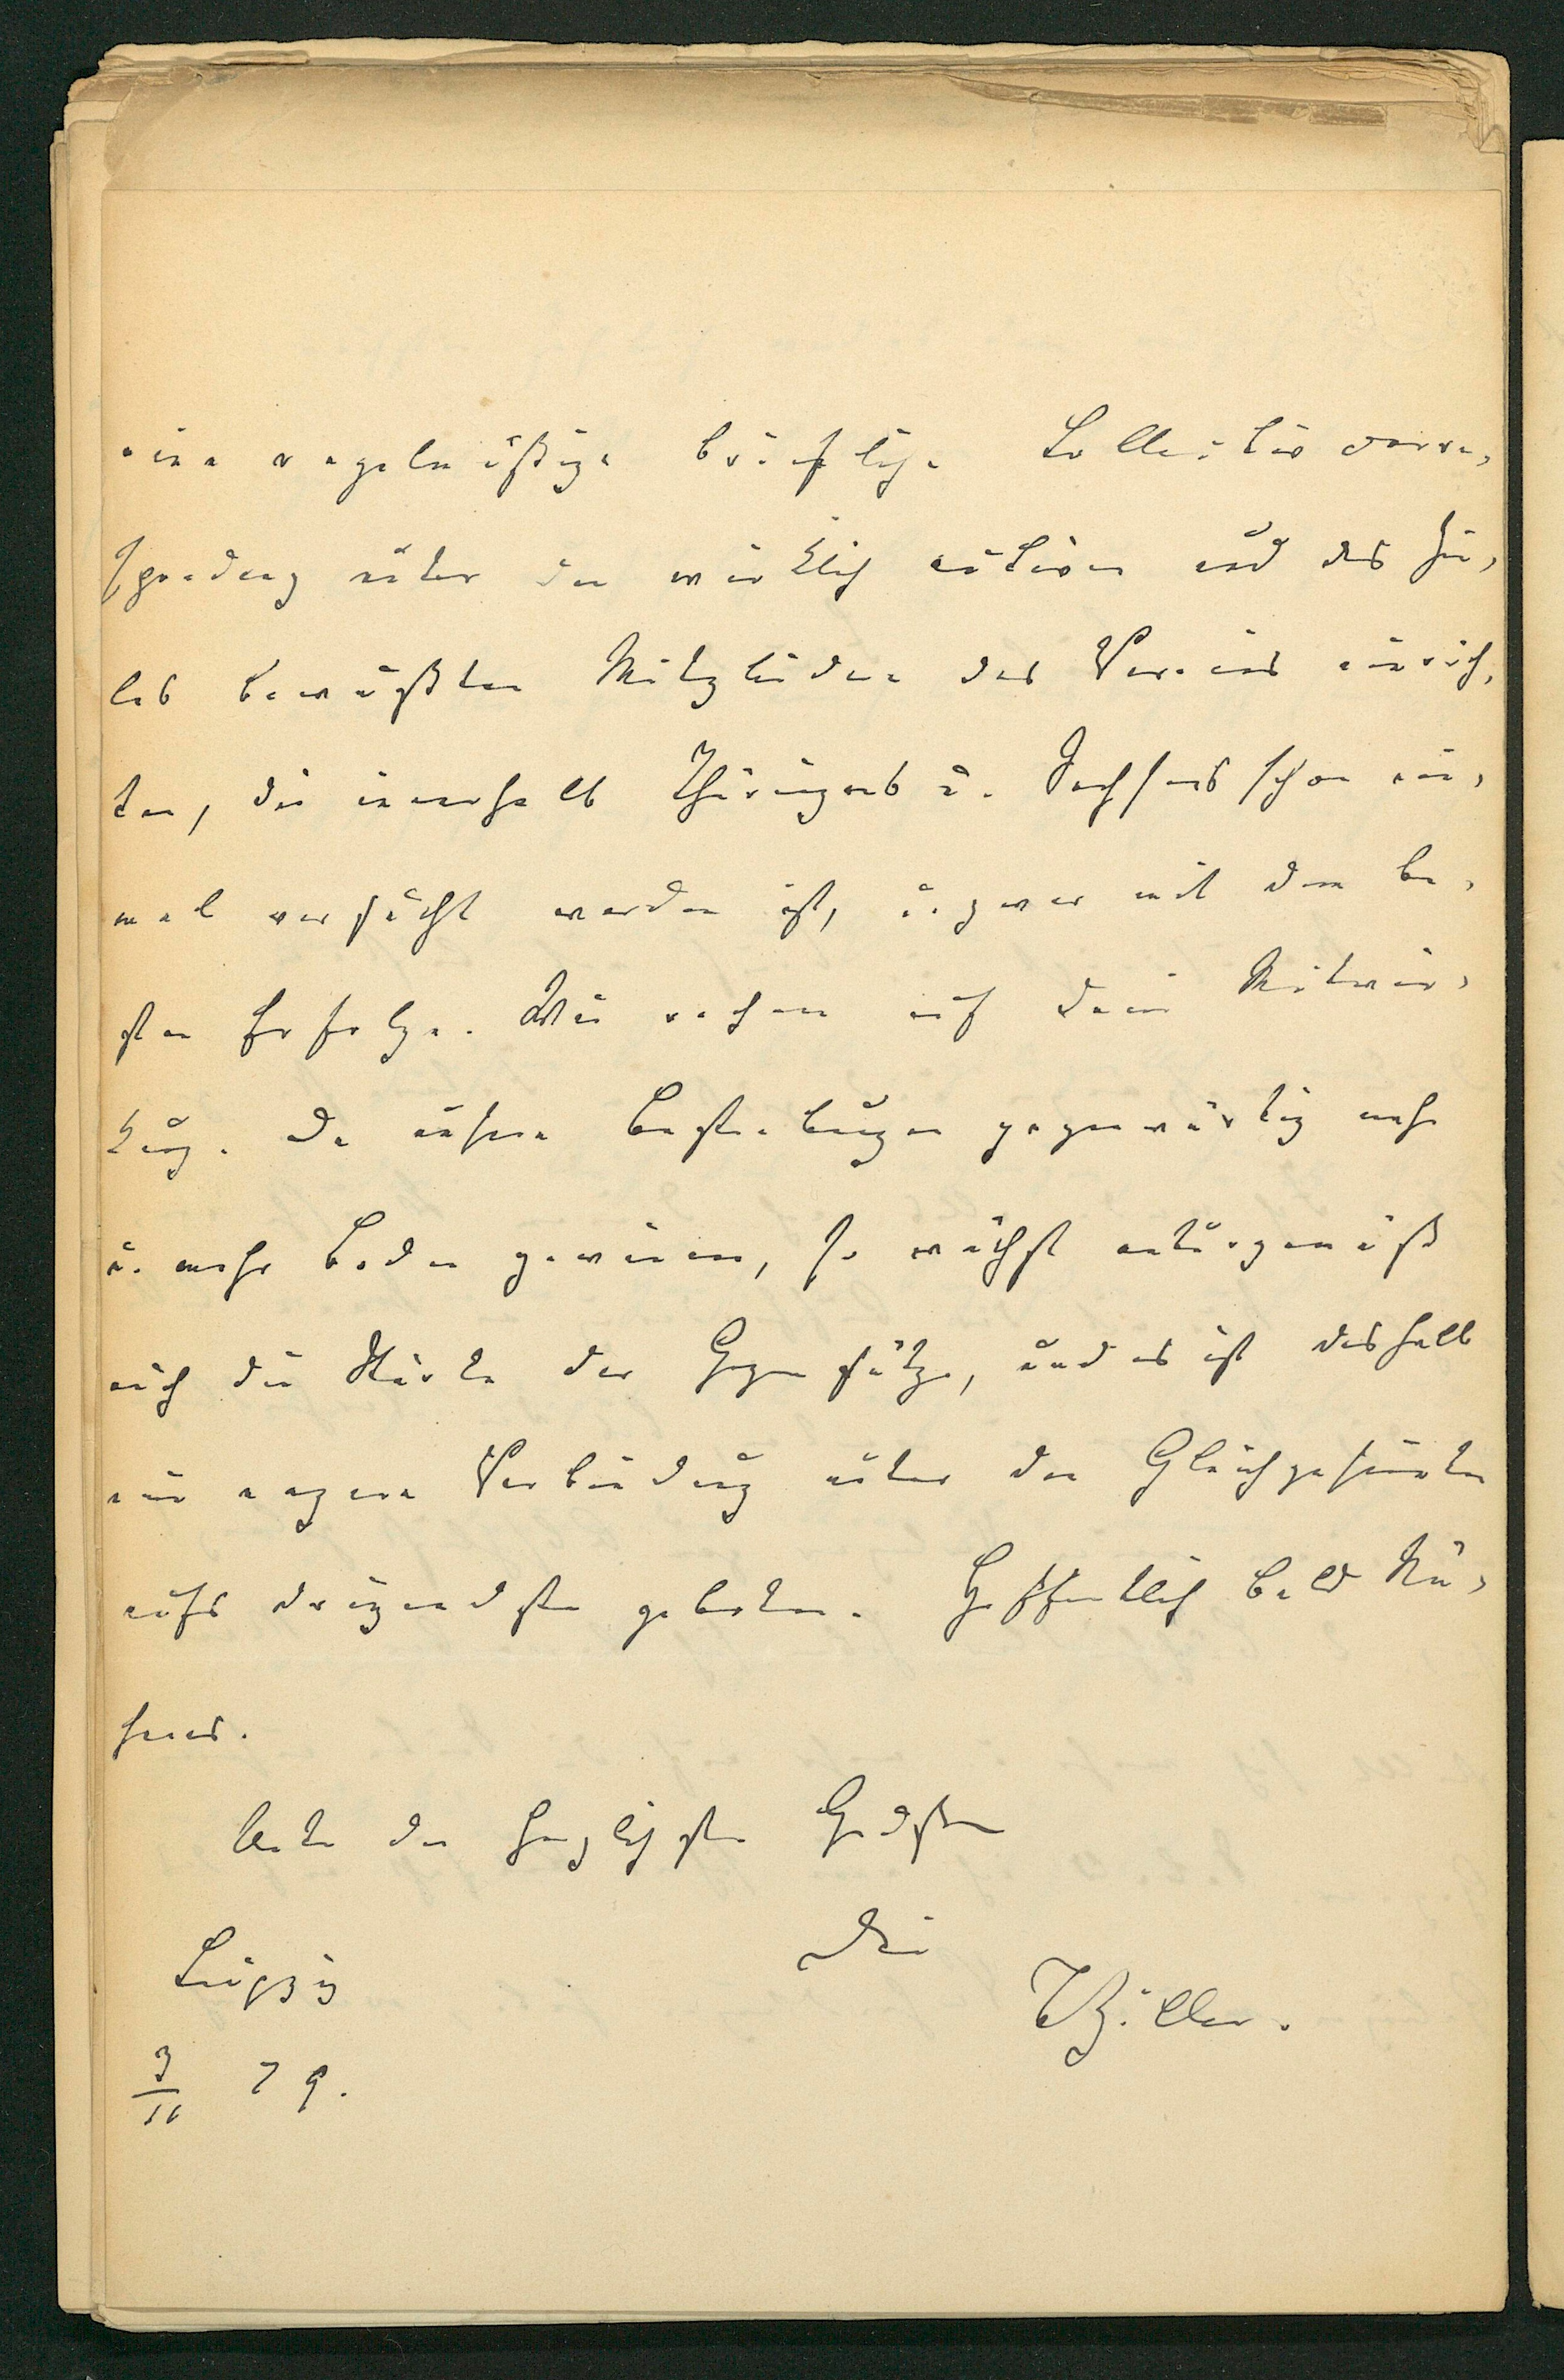 eine regelmäßige briefliche Collectivcorre-
spondenz unter den wirklich activen und des Zie-
les bewußten Mitgliedern des Vereins einrich-
ten, die innerhalb Thüringens u. Sachsens schon ein-
mal versucht worden ist, u. zwar mit dem be-
sten Erfolge. Wir rechnen auf Deine Mitwir-
kung. Da unsere Bestrebungen gegenwärtig mehr
u. mehr Boden gewinnen, so wächst naturgemäß
auch die Stärke der Gegensätze, und es ist deshalb
eine engere Verbindung unter den Gleichgesinnten
aufs dringendste geboten. Hoffentlich bald Nä-
heres.
Unter den herzlichsten Grüßen
Dein
Leipzig
TZiller.
3/11 79.